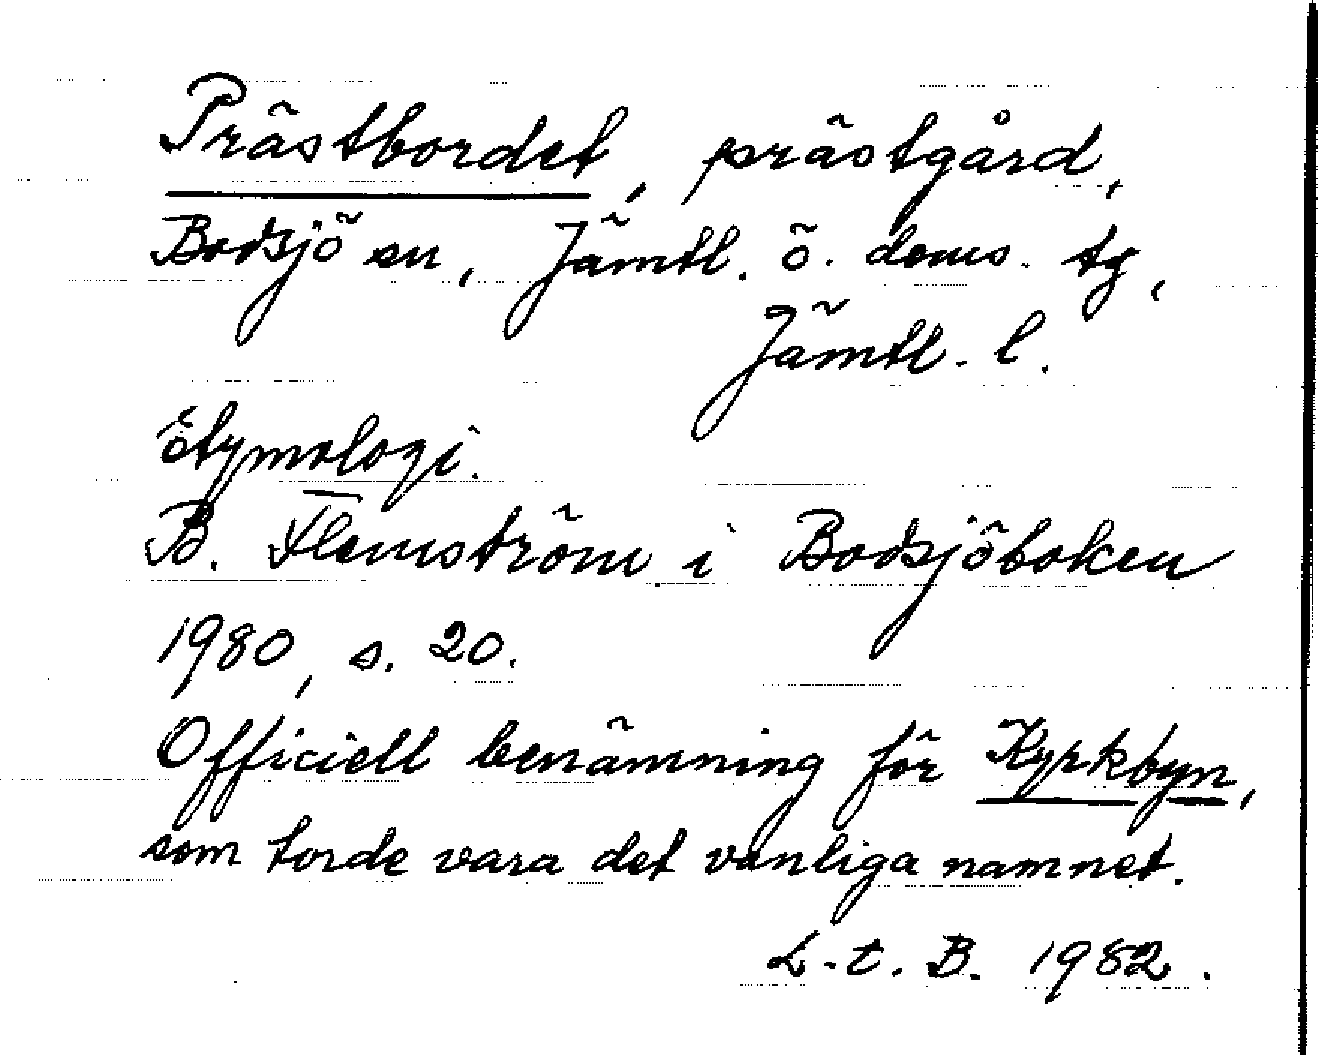 Prästbordet, prästgård,
Bodsjö sn, Jämtl. ö. doms. tg,
Jämtl. l.
Etymologi.
B. Flemström i Bodsjöboken
1980, s. 20.
Officiell benämning för Kyrkbyn,
som torde vara det vanliga namnet.
L.t.B. 1982.